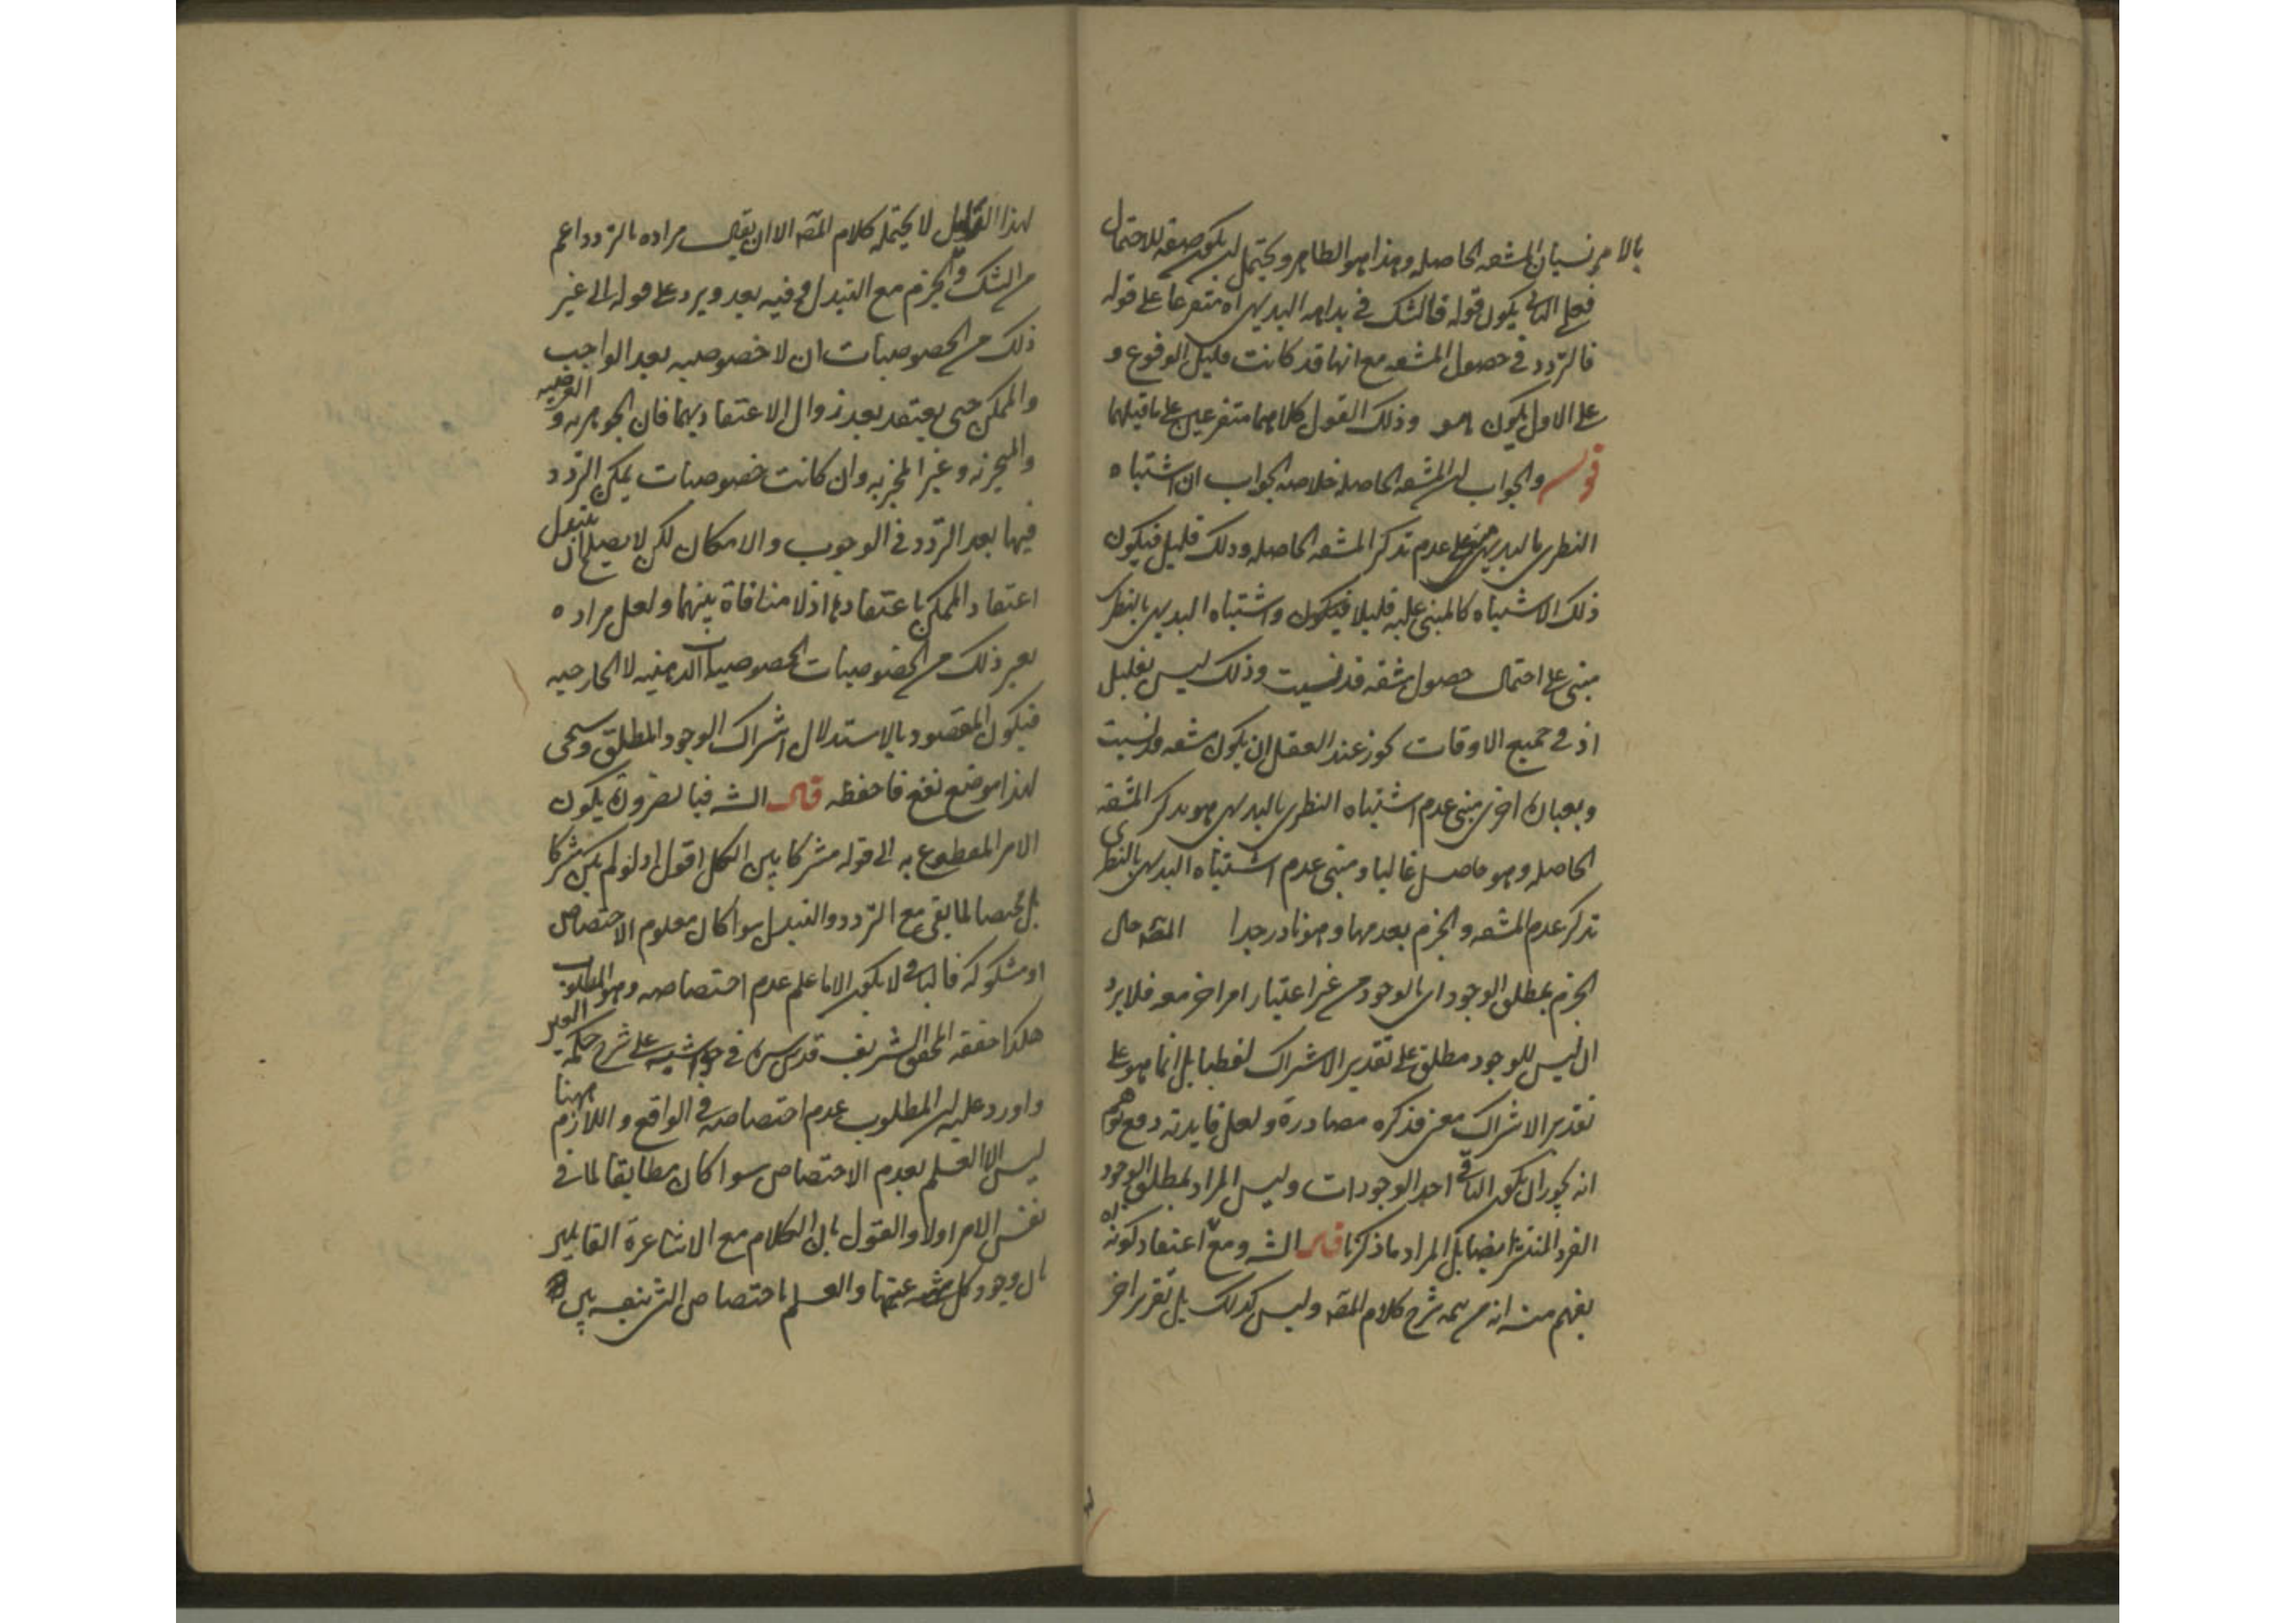 بالامر نسيان المشقه الحاصله وهذا هو الظاهر ويحتمل ان يكون صفه للاحتمال
فعلى الثانى يكون قوله فالشك فى بداهه البديهى اه متفرعا على قوله
فالتردد فى حصول المشقه مع انها قد كانت قليل الوقوع و
على الاول يكون هو وذلك القول كلاهما متفرعين على ما قبلهما
قوله والجواب ان المشقه الحاصله خلاصه الجواب ان اشتباه
النظرى بالبديهى مبنى على عدم تذكر المشقه الحاصله وذلك قليل فيكون
ذلك الاشتباه كالمبنى عليه قليلا فيكون واشتباه البديهى بالنظرى
مبنى على احتمال حصول مشقه قد نسيت وذلك ليس بقليل
اذ فى جميع الاوقات يجوز عند العقل ان يكون مشقه قد نسيت
وبعبارة اخرى مبنى عدم اشتباه النظرى بالبديهى هو تذكر المشقه
الحاصله وهو حاصل غالبا ومبنى عدم اشتباه البديهى بالنظرى
تذكر عدم المشقه والجزم بعدمها وهو نادر جدا المصه حال
الجزم بمطلق الوجود اى بالوجود من غير اعتبار امر اخر معه فلا يرد
ان ليس للوجود مطلق على تقدير الاشتراك لفظيا بل انما هو على
تقدير الاشتراك معنى فذكره مصادرة ولعل فايدته دفع توهم
انه يجوز ان يكون الباقى احد الوجودات وليس المراد بمطلق الوجود
الفرد المنتشر ايضا بل المراد ما ذكرنا قال الشه ومع اعتقاد كونه اه
يفهم منه انه من تتمه شرح كلام المصه وليس كذلك بل تقرير اخر
لهذا الدليل لا يحتمله كلام المصه الا ان يقال مراده بالتردد اعم
من الشك والجزم مع التبدل وفيه بعد ويرد على قوله الى غير
ذلك من الخصوصيات ان لا خصوصيه بعد الواجب
والممكن حتى يعتقد بعد زوال الاعتقاد بهما فان الجوهريه والعرضيه
والمتحيزيه وغير المتحيزيه وان كانت خصوصيات يمكن التردد
فيها بعد التردد فى الوجوب والامكان لكن لا يصلح ان يتبدل
اعتقاد الممكن باعتقادها اذ لا منافاة بينهما ولعل مراده
بغير ذلك من الخصوصيات الخصوصيات الذهنيه لا الخارجيه
فيكون المقصود بالاستدلال اشتراك الوجود المطلق وسيجى
لهذا موضع نفع فاحفظه قال الشه فبالضرورة يكون
الامر المقطوع به الى قوله مشتركا بين الكل اقول اذ لو لم يكن مشتركا
بل مختصا لما بقى مع التردد والتبدل سوا كان معلوم الاختصاص
او مشكوكه فالباقى لا يكون الا ما علم عدم اختصاصه وهو المطلوب
هكذا حققه المحقق الشريف قدس سره فى حواشيه على شرح حكمه العين
واورد عليه ان المطلوب عدم اختصاصه فى الواقع واللازم ههنا
ليس الا العلم بعدم الاختصاص سوا كان مطابقا لما فى
نفس الامر اولا والقول بان الكلام مع الاشاعرة القايلين
بان وجود كل شى عينها والعلم باختصاص الشى بنفسه بين